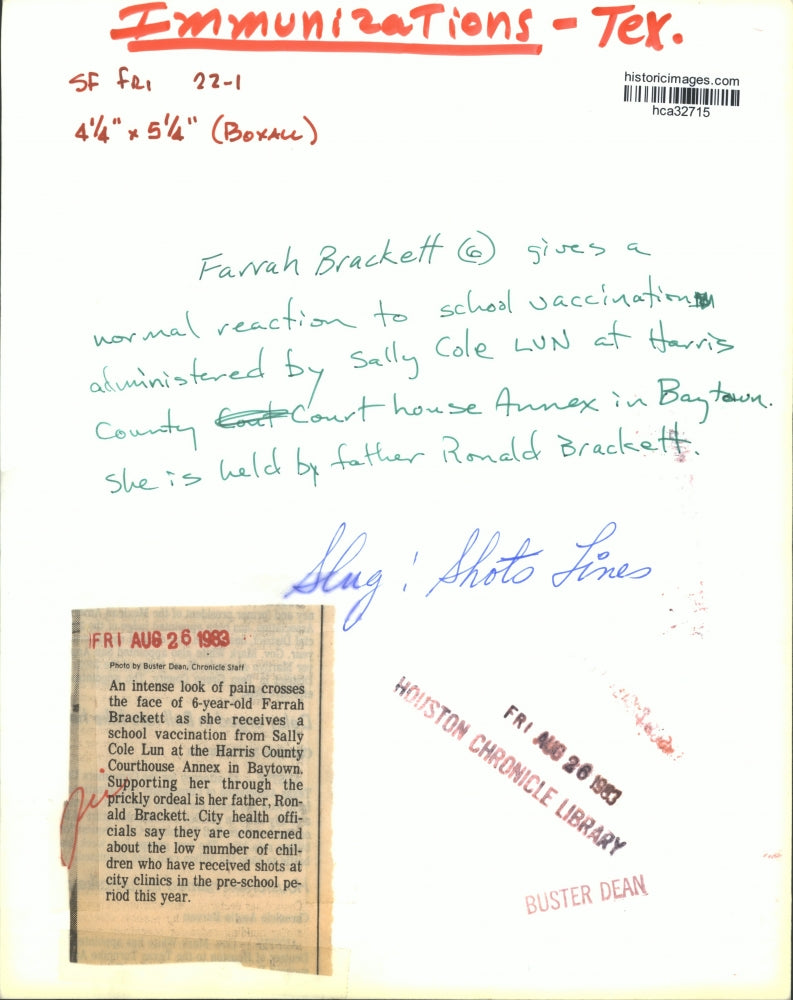 Immunizations - Tex.
SF FRI 22-1
4 1/4" x 5 1/4" (BOXALL)
historicimages.com
hca32715
Farrah Brackett (6) gives a
normal reaction to school vaccination
administered by Sally Cole LUN at Harris
County Court house Annex in Baytown.
She is held by father Ronald Brackett.
Slug: Shots Lines
FRI AUG 26 1983
Photo by Buster Dean, Chronicle Staff
An intense look of pain crosses
the face of 6-year-old Farrah
Brackett as she receives a
school vaccination from Sally
Cole Lun at the Harris County
Courthouse Annex in Baytown.
Supporting her through the
prickly ordeal is her father, Ron-
ald Brackett. City health offi-
cials say they are concerned
about the low number of chil-
dren who have received shots at
city clinics in the pre-school pe-
riod this year.
FRI AUG 26 1983
HOUSTON CHRONICLE LIBRARY
BUSTER DEAN